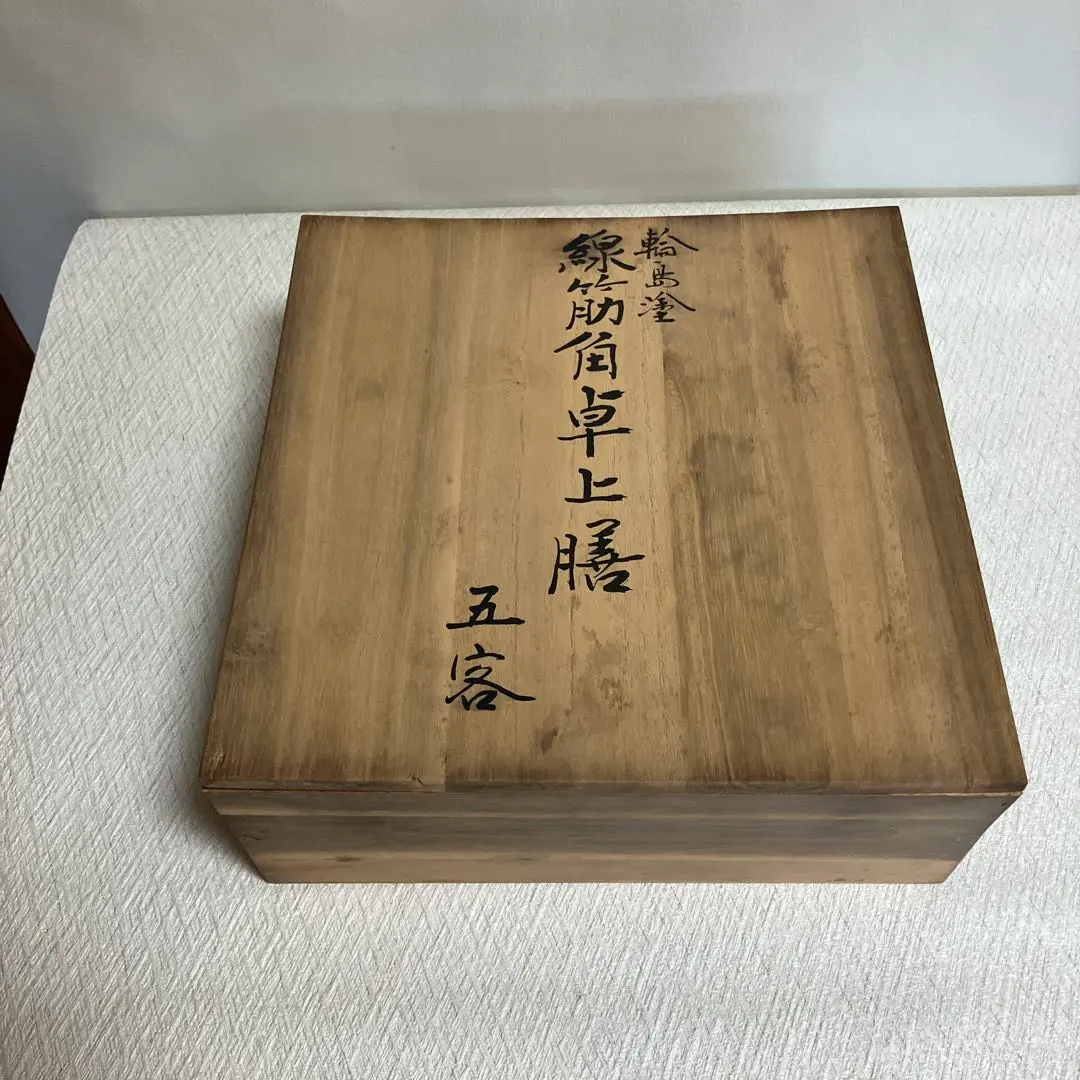 輪島塗
線筋角卓上膳
五客